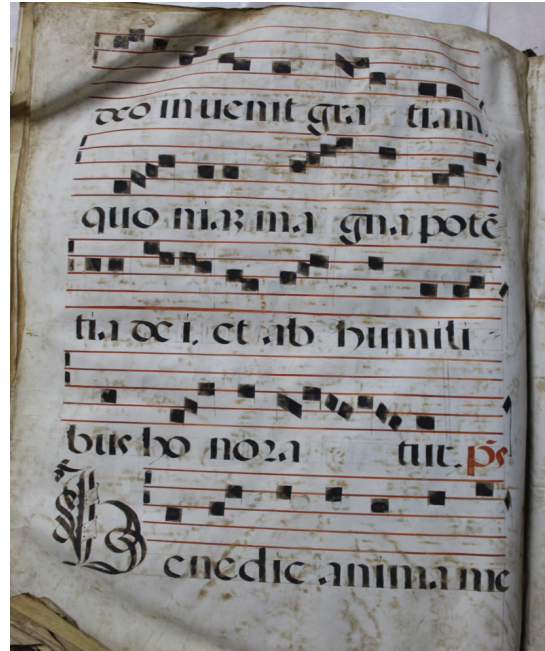 deo inuenit gratiam.
quoniaʒ magna potē
tia dei, et ab humili
bus honoratur. p̄s
Benedic anima me